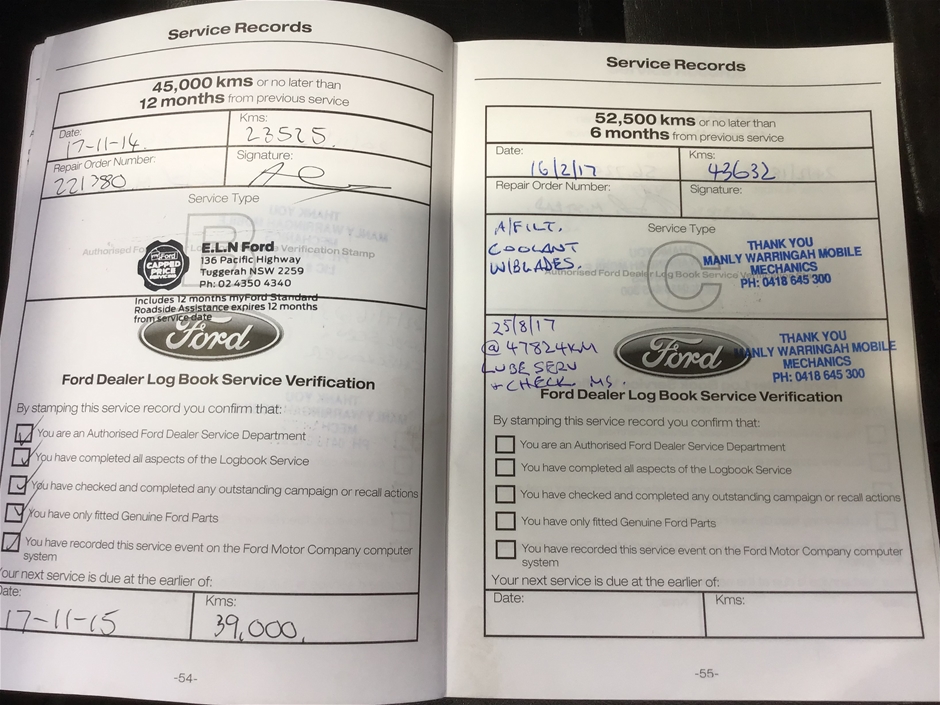 Service Records
45,000 kms or no later than
12 months from previous service
Date:
17-11-14
Kms:
23525
Repair Order Number:
221780
Signature:
Service Type
B
Authorised Ford Verification Stamp
myFord
CAPPED
PRICE
SERVICING
E.L.N Ford
136 Pacific Highway
Tuggerah NSW 2259
Ph: 02 4350 4340
Includes 12 months myFord Standard
Roadside Assistance expires 12 months
from service date
Ford
Ford Dealer Log Book Service Verification
By stamping this service record you confirm that:
You are an Authorised Ford Dealer Service Department
You have completed all aspects of the Logbook Service
You have checked and completed any outstanding campaign or recall actions
You have only fitted Genuine Ford Parts
You have recorded this service event on the Ford Motor Company computer
system
Your next service is due at the earlier of:
Date:
17-11-15
Kms:
39,000
-54-
Service Records
52,500 kms or no later than
6 months from previous service
Date:
16/2/17
Kms:
43632
Repair Order Number:
Signature:
Service Type
A/FILT.
COOLANT
W/BLADES.
C
Authorised Ford Dealer Log Book Service
THANK YOU
MANLY WARRINGAH MOBILE
MECHANICS
PH: 0418 645 300
25/8/17
@ 47824KM
LUBE SERV
+ CHECK MS.
Ford
THANK YOU
MANLY WARRINGAH MOBILE
MECHANICS
PH: 0418 645 300
Ford Dealer Log Book Service Verification
By stamping this service record you confirm that:
You are an Authorised Ford Dealer Service Department
You have completed all aspects of the Logbook Service
You have checked and completed any outstanding campaign or recall actions
You have only fitted Genuine Ford Parts
You have recorded this service event on the Ford Motor Company computer
system
Your next service is due at the earlier of:
Date:
Kms:
-55-